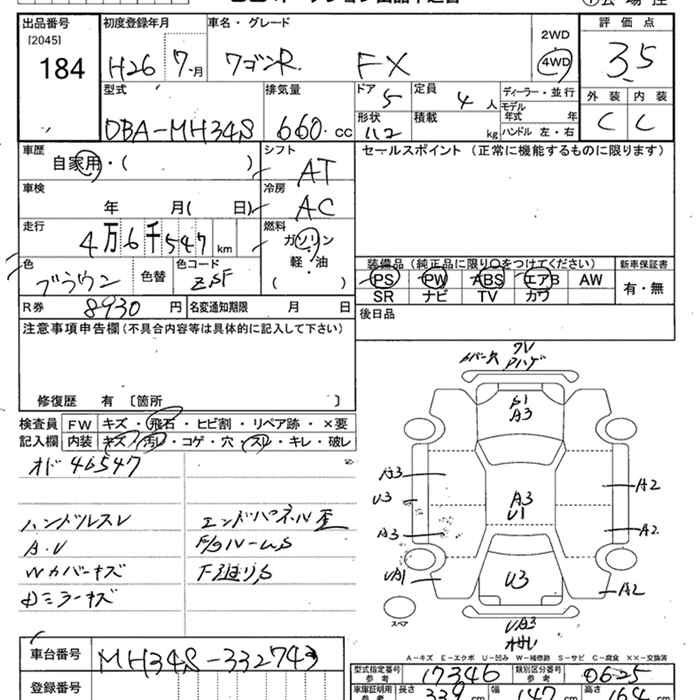 出品番号
[2045]
184
初度登録年月
H26 7月
車名・グレード
ワゴンR FX
2WD
4WD
評価点
3.5
外装 内装
C C
型式
DBA-MH34S
排気量
660 cc
ドア 5
定員 4 人
形状
積載 kg
ディーラー・並行
モデル年式 年
ハンドル 左・右
車歴
自家用・( )
シフト
AT
セールスポイント (正常に機能するものに限ります)
車検
年 月( 日)
冷房
AC
走行
4万6千547km
燃料
ガソリン
軽・油
( )
色
ブラウン
色替
色コード
ZSF
装備品 (純正品に限り○をつけてください)
PS PW ABS エアB AW
SR ナビ TV カワ
新車保証書
有・無
R券 8930 円
名変通知期限 月 日
後日品
注意事項申告欄 (不具合内容等は具体的に記入して下さい)
修復歴 有 〔箇所
検査員記入欄
FW キズ・飛石・ヒビ割・リペア跡・×要
内装 キズ・汚レ・コゲ・穴・スレ・キレ・破レ
オド 46547
ハンドルスレ
A・U
Wカバーキズ
ミラーキズ
エンドパネル歪
A3
A3
U1
U3
A3
U3
A3
A2
A2
A2
UA3
スペア
A-キズ E-エクボ U-凹み W-補修跡 S-サビ C-腐食 XX-交換済
車台番号
MH34S-332743
登録番号
型式指定番号 参考
17346
類別区分番号 参考
0625
車庫証明用 参考
長さ 339 cm
幅 147 cm
高さ 164 cm